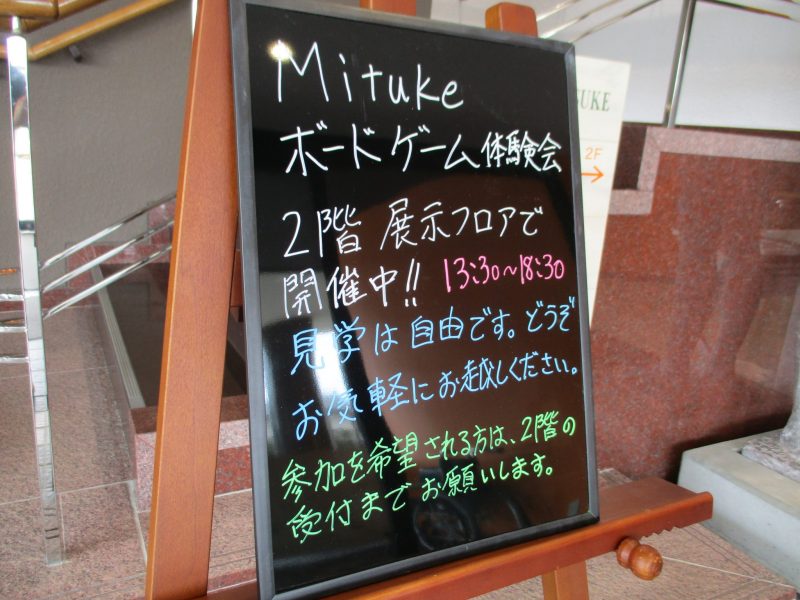 Mituke
ボードゲーム体験会
2階 展示フロアで
開催中!! 13:30～18:30
見学は自由です。どうぞ
お気軽にお越しください。
参加を希望される方は、2階の
受付までお願いします。
SUKE
2F
→